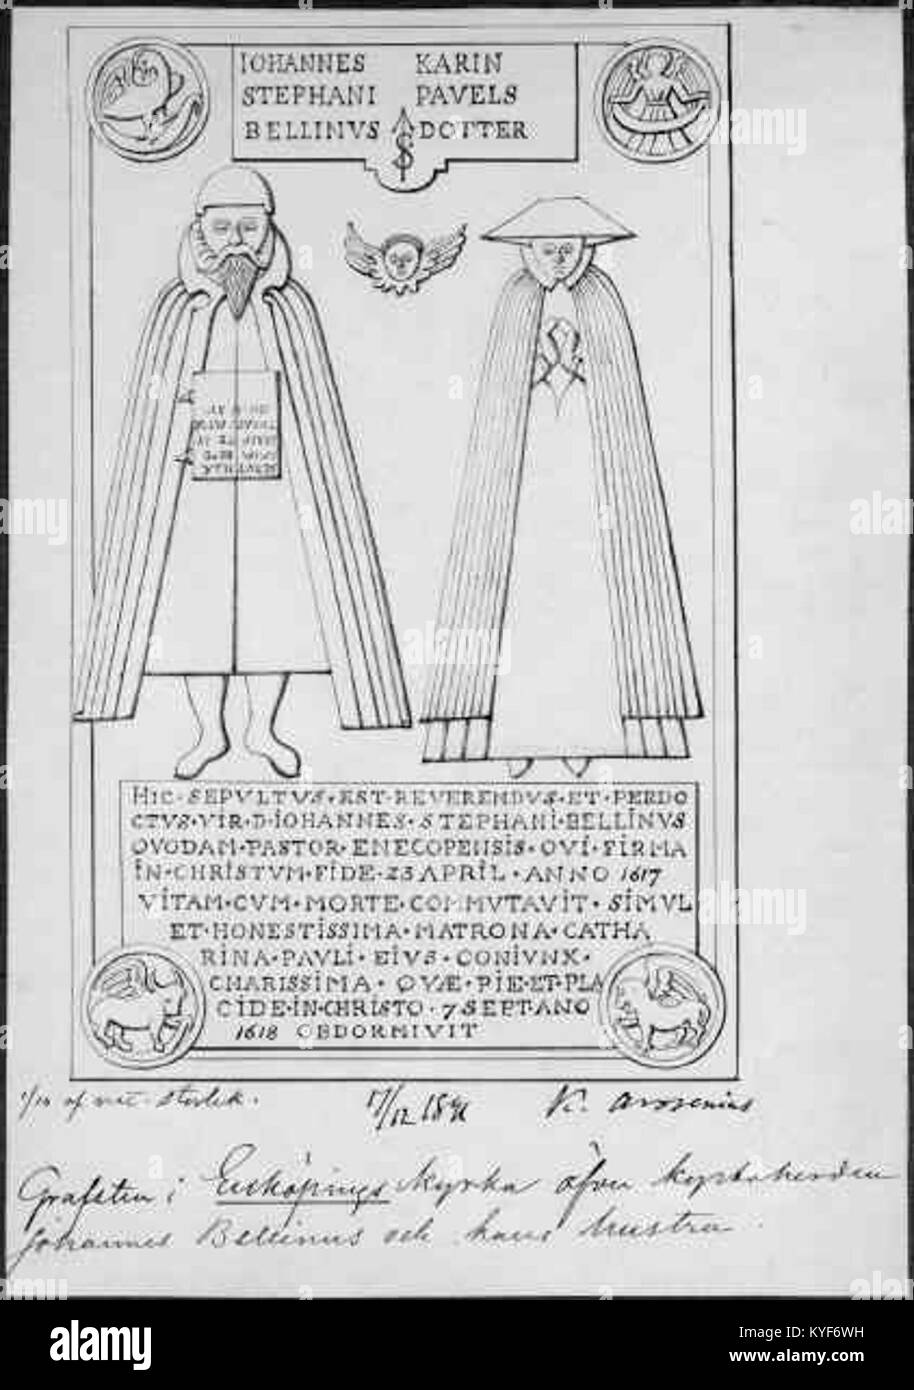 IOHANNES KARIN
STEPHANI PAVELS
BELLINVS DOTTER
HIC · SEPVLTVS · EST · REVERENDVS · ET · PERDO
CTVS · VIR · D · IOHANNES · STEPHANI · BELLINVS
QVODAM · PASTOR · ENECOPENSIS · QVI · FIRMA
IN · CHRISTVM · FIDE · 23 APRIL · ANNO 1617
VITAM · CVM · MORTE · COMMVTAVIT · SIMVL
ET · HONESTISSIMA · MATRONA · CATHA
RINA · PAVLI · EIVS · CONIVNX ·
CHARISSIMA · QVÆ · PIE · ET · PLA
CIDE · IN · CHRISTO · 7 SEPT · ANO
1618 OBDORMIVIT
1/10 af nat. storlek.
K. Arosenius
Grafsten i Enköpings kyrka öfver kyrkoherden
Johannes Bellinus och hans hustru.
alamy
Image ID: KYF6WH
www.alamy.com